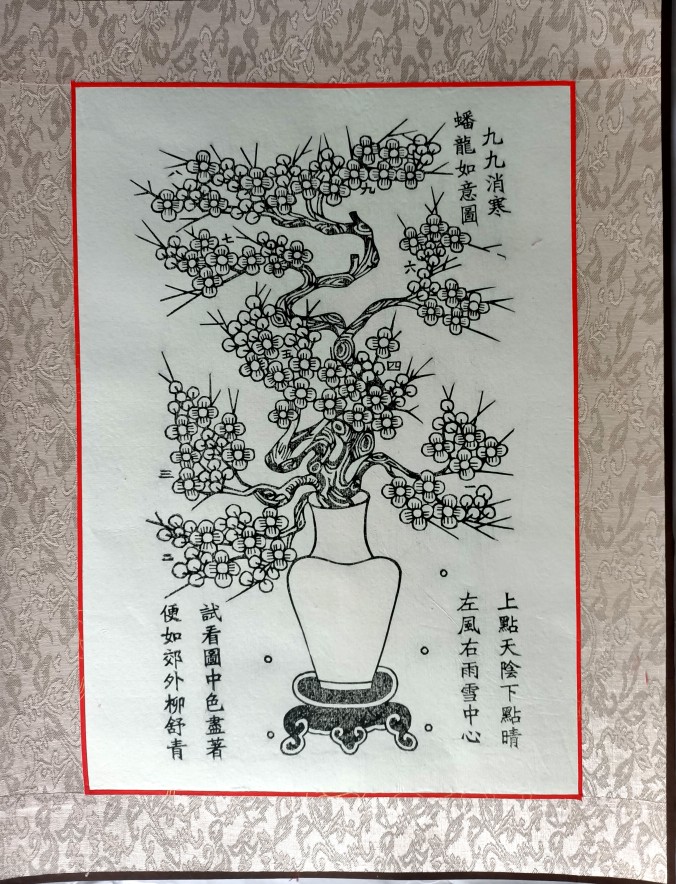 九九消寒
蟠龍如意圖
九
八
七
六
五
四
三
二
一
上點天陰下點晴
左風右雨雪中心
試看圖中色盡著
便如郊外柳舒青